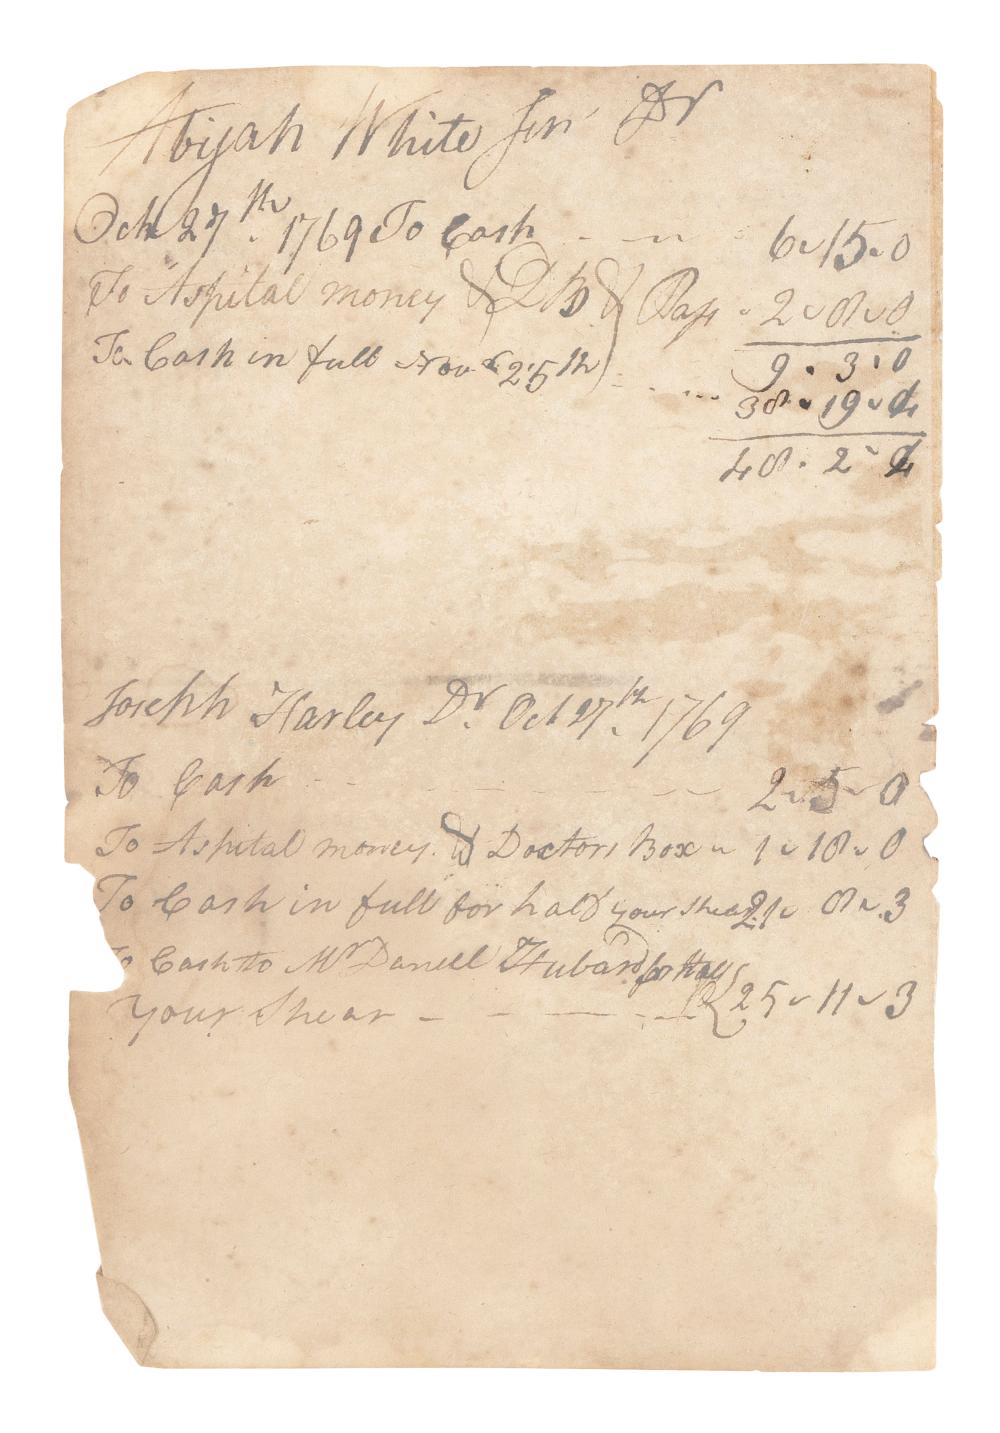 Abijah White Jun Dr
Oct 27th 1769 To Cash 6 " 15 " 0
To Aspital money & D B & Pass 2 " 8 " 0
9 " 3 " 0
To Cash in full Nov 25th 38 " 19 " 4
48 " 2 " 4
Joseph Harley Dr. Oct 27th. 1769
To Cash 2 " 5 " 0
To Aspital money & Doctors Box 1 " 18 " 0
To Cash in full for half your Shear 21 " 8 " 3
To Cash to Mr Daniell Hubard for Half
Your Shear 25 " 11 " 3